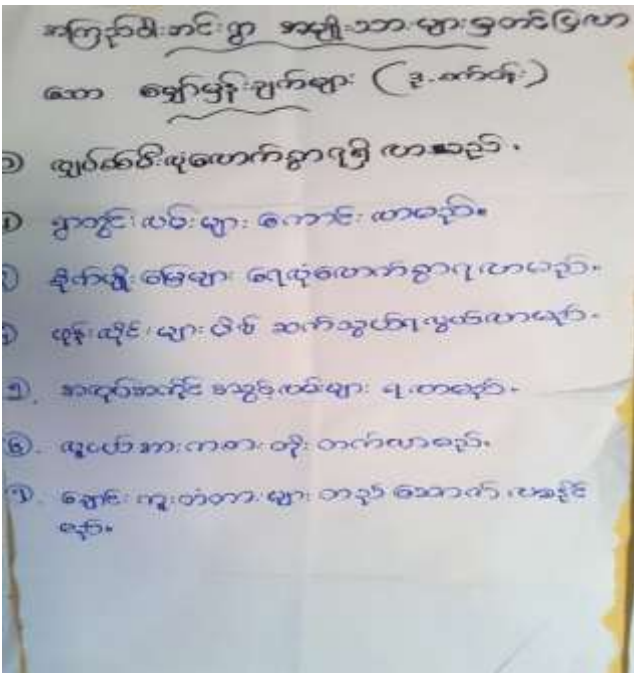 အကြည်ဝါးတင်းရွာ အမျိုးသားများမှတင်ပြလာ
သော မျှော်မှန်းချက်များ (၃.
၁) လျှပ်စစ်မီးလုံလောက်စွာရရှိလာမည်.
၂) ရွာတွင်းလမ်းများ ကောင်းလာမည်။
၃) စိုက်ပျိုးမြေများ ရေလုံလောက်စွာရလာမည်.
၄) ဖုန်းလိုင်းများမိ၍ ဆက်သွယ်ရလွယ်လာမည်.
၅). အလုပ်အကိုင် အခွင့်လမ်းများ ရလာမည်.
၆). လူငယ်အားကစား တိုးတက်လာမည်.
၇). ချောင်းကူးတံတားများ တည်ဆောက်လာနိုင်
မည်။